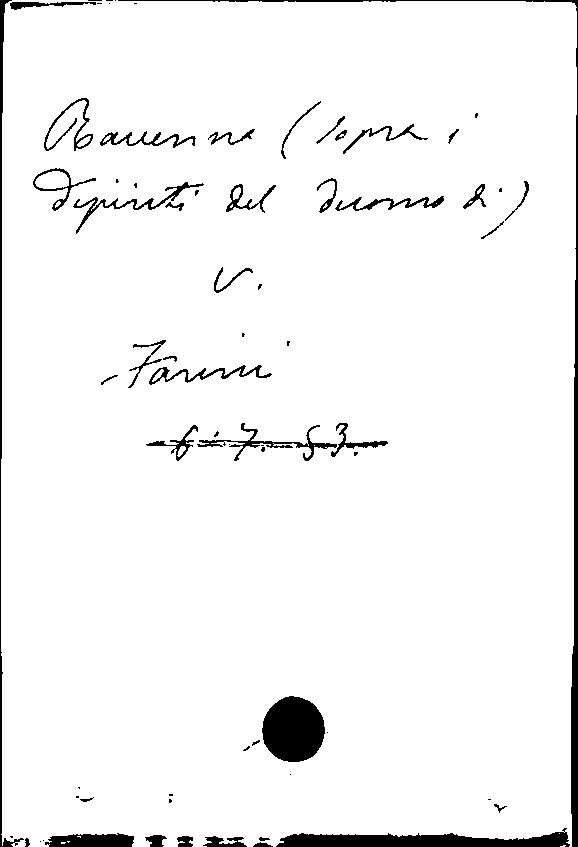 Ravenna (sopra i
dipinti del duomo di)
V.
Farini
6. 7. 53.